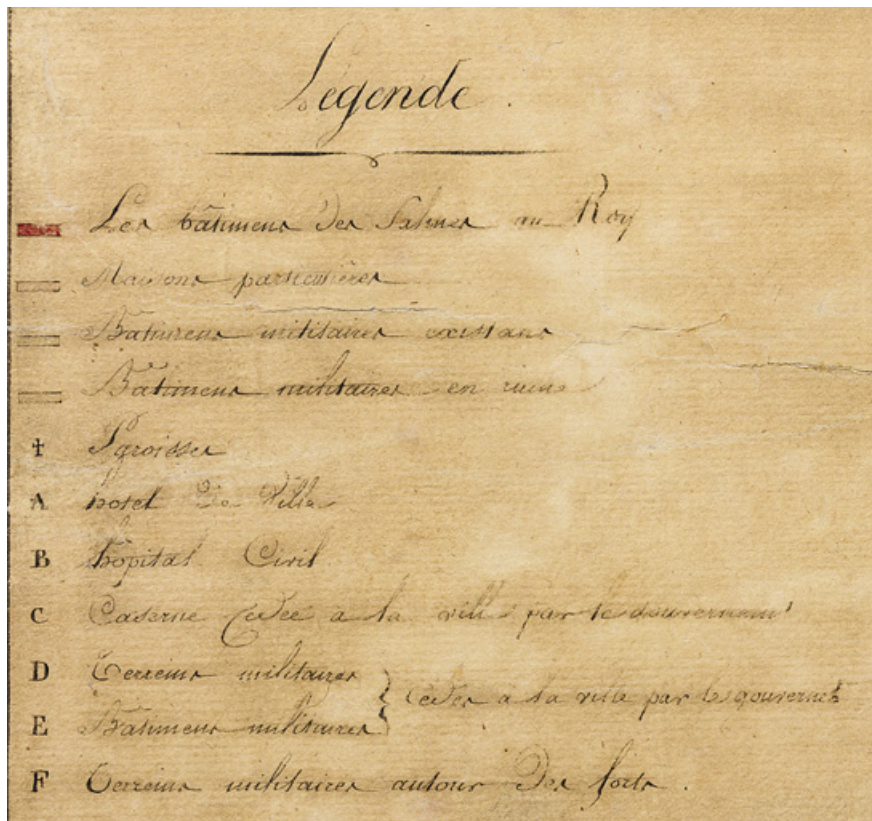 Légende.
Les bâtimens des Salines au Roy
Maisons particulières
Bâtimens militaires existans
Bâtimens militaires en ruine
✝ Paroisse
A hotel De Ville
B hôpital Civil
C Caserne Cédée a la ville par le Gouvernemt
D Terreins militaires
} Cédés a la ville par le gouvernet
E Bâtimens militaires
F Terreins militaires autour Des forts.